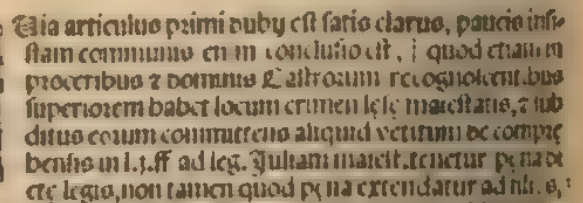 Uia articulus primi duby est satis clarus, paucis insi-
stam communis en im conclusio est, quod etiam in
proceribus ⁊ dominis Castrorum recognoscentibus
superiorem habet locum crimen lęsę maiestatis, ⁊ sub
ditus eorum committens aliquid vetitum de compre
hensis in l.j.ff ad leg. Juliam maiest. tenetur pęna de
etę legis, non tamen quod pęna extendatur ad